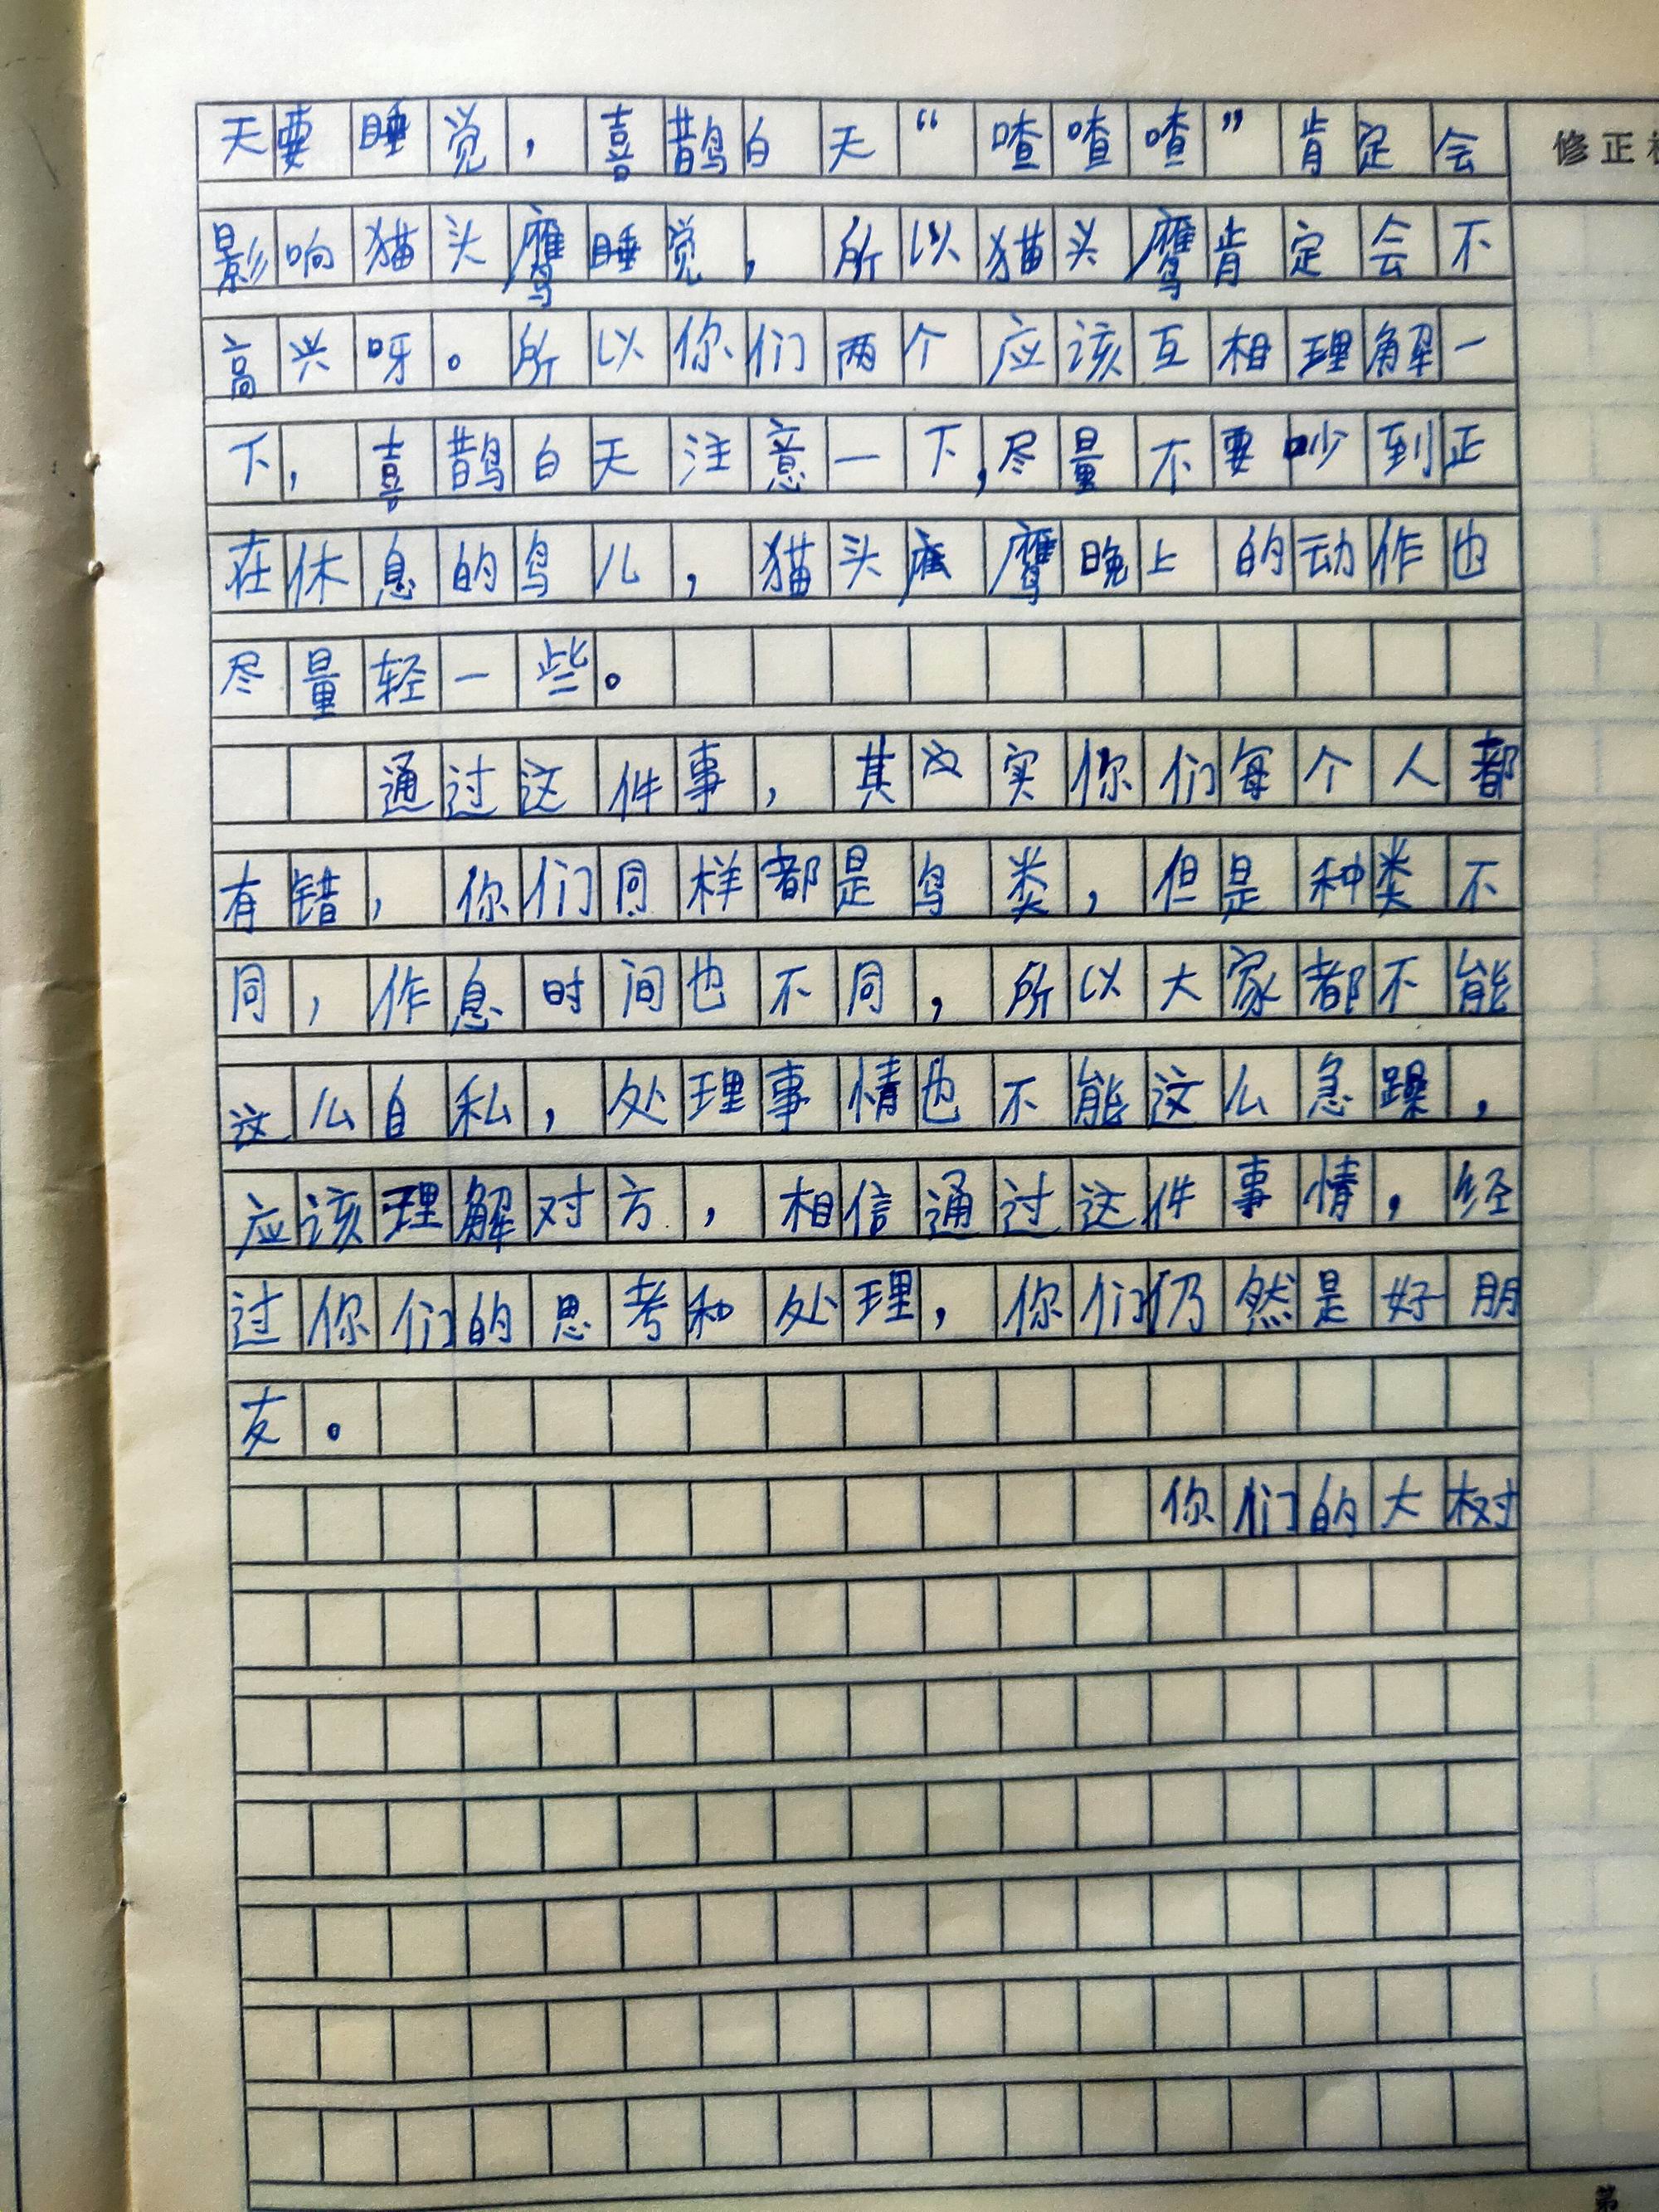 天要睡觉，喜鹊白天“喳喳喳”肯定会
修正
影响猫头鹰睡觉，所以猫头鹰肯定会不
高兴呀。所以你们两个应该互相理解一
下，喜鹊白天注意一下,尽量不要吵到正
在休息的鸟儿，猫头鹰晚上的动作也
尽量轻一些。
通过这件事，其实你们每个人都
有错，你们同样都是鸟类，但是种类不
同，作息时间也不同，所以大家都不能
这么自私，处理事情也不能这么急躁，
应该理解对方，相信通过这件事情，经
过你们的思考和处理，你们仍然是好朋
友。
你们的大树
第